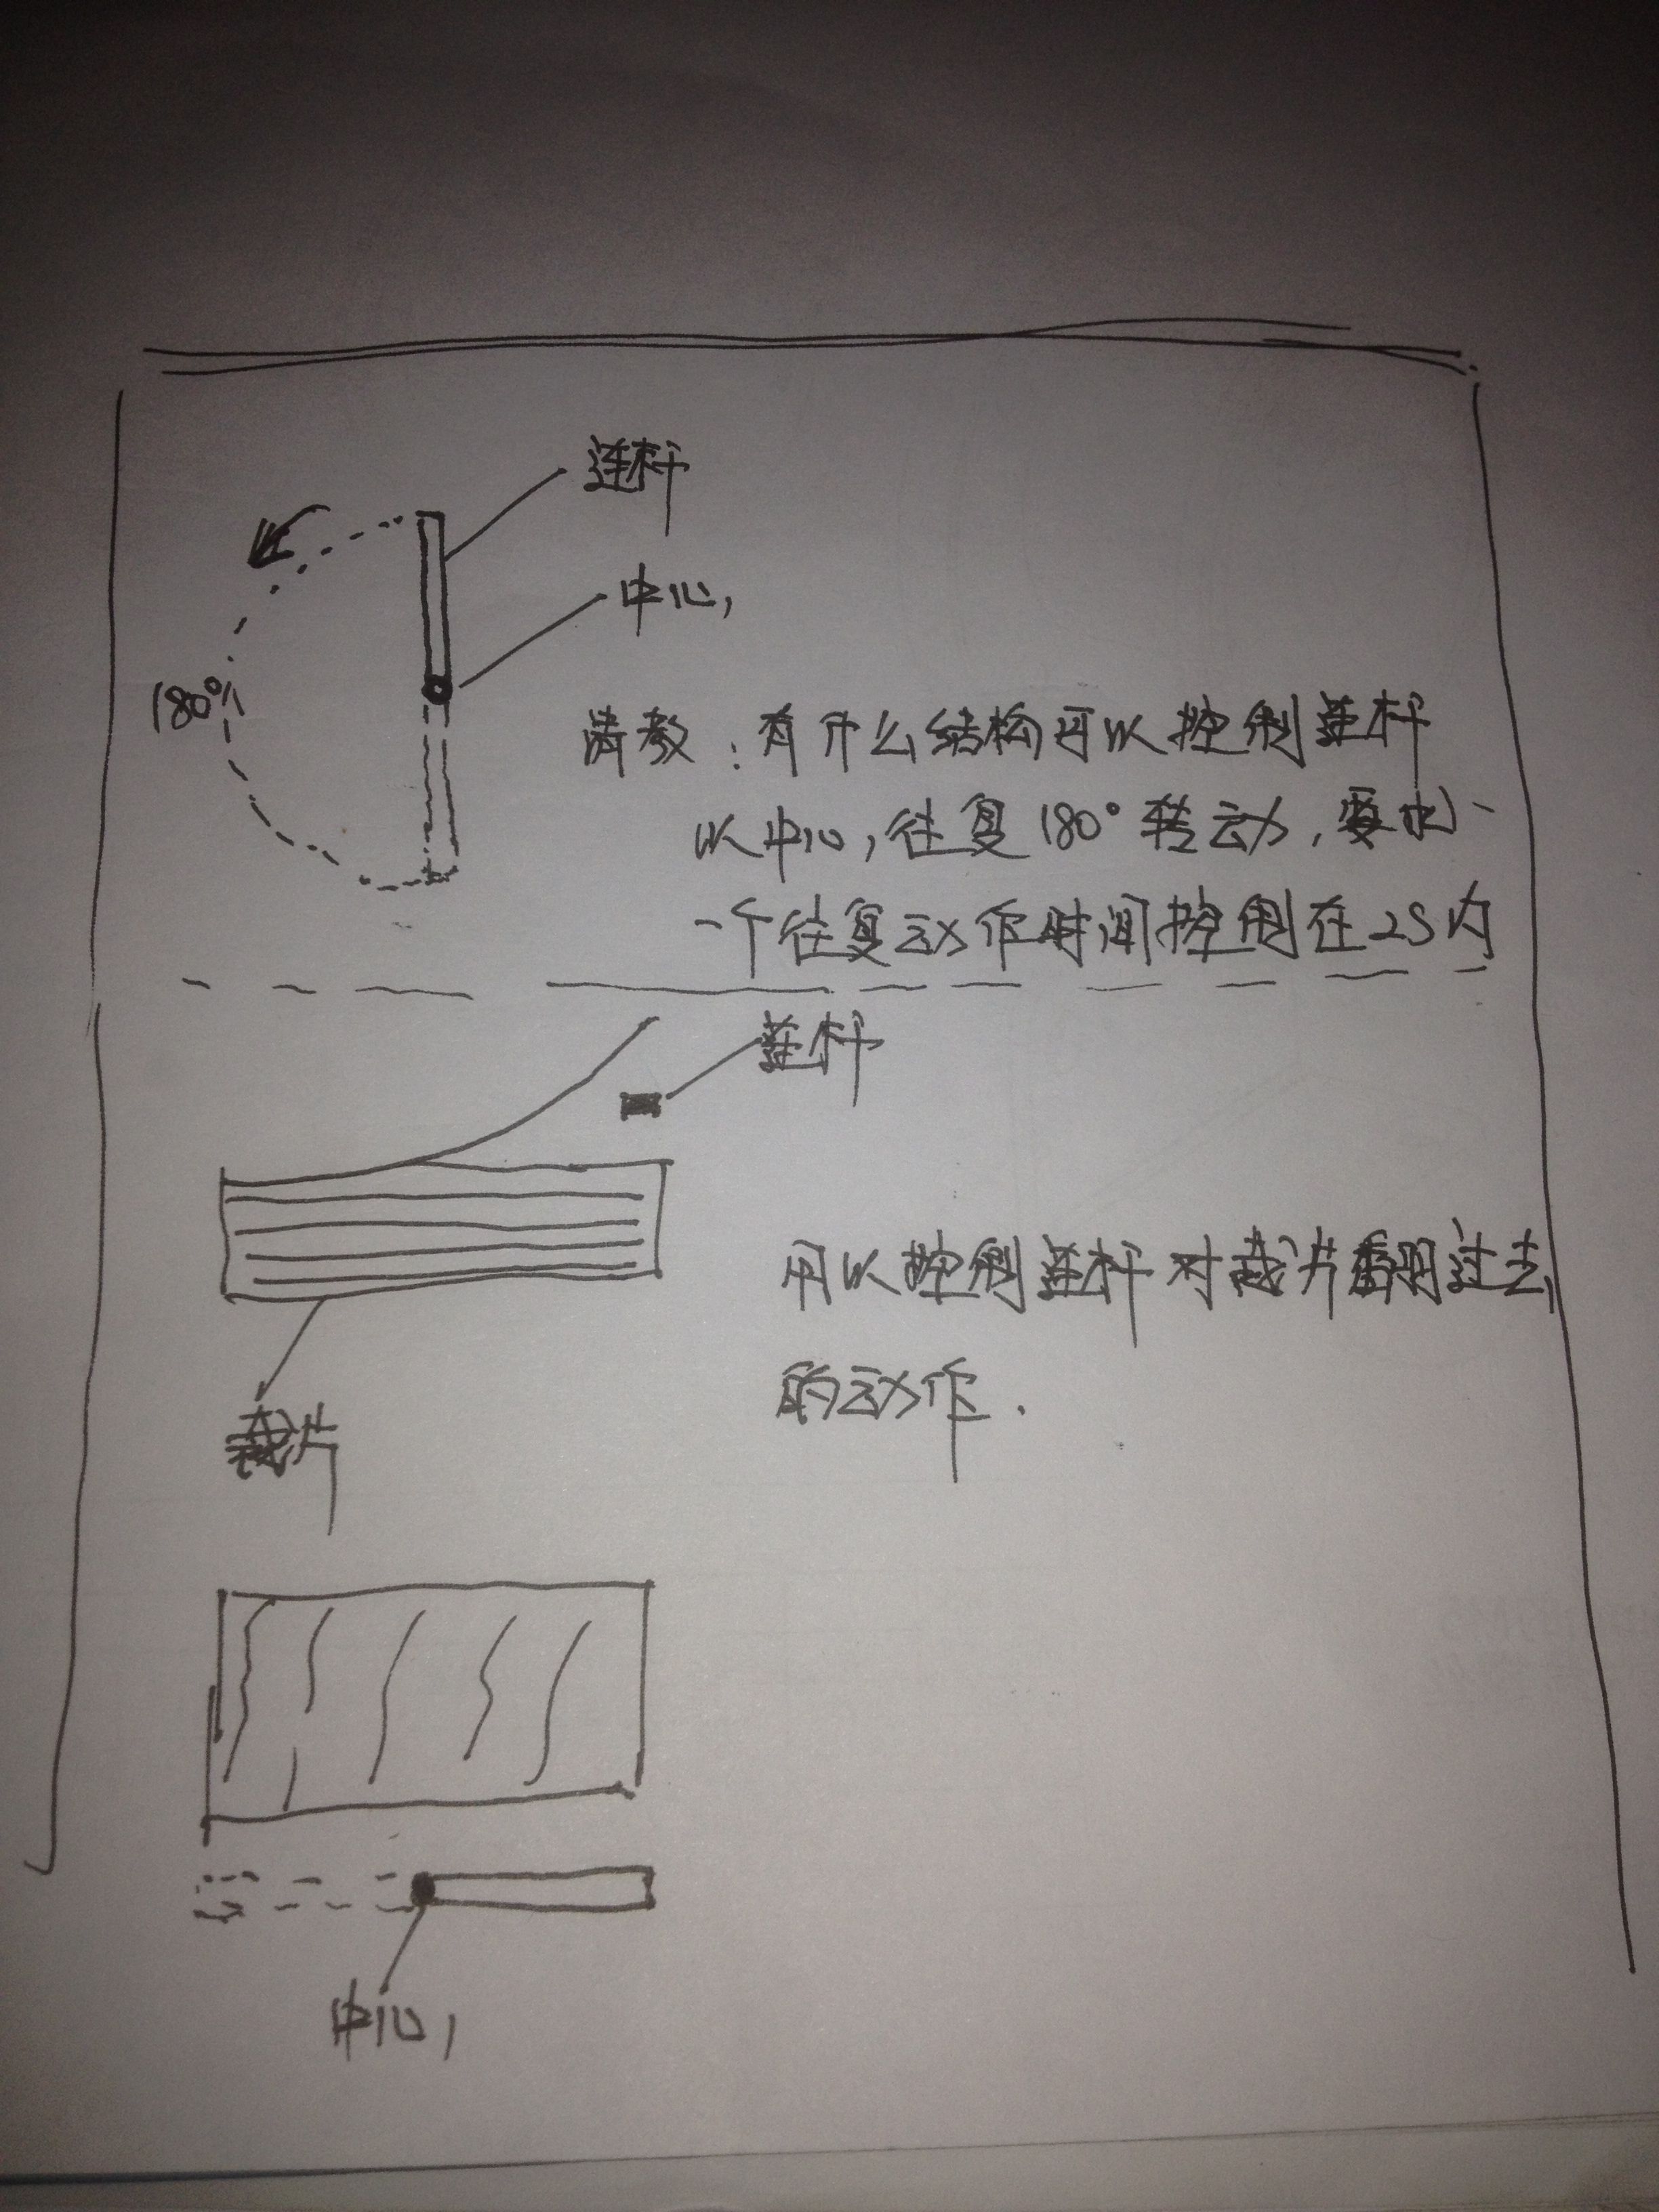 连杆
中心,
180°
请教:有什么结构可以控制连杆
以中心,往复180°转动,要求
一个往复动作时间控制在2S内
连杆
用以控制连杆对裁片翻过去
的动作.
裁片
中心,